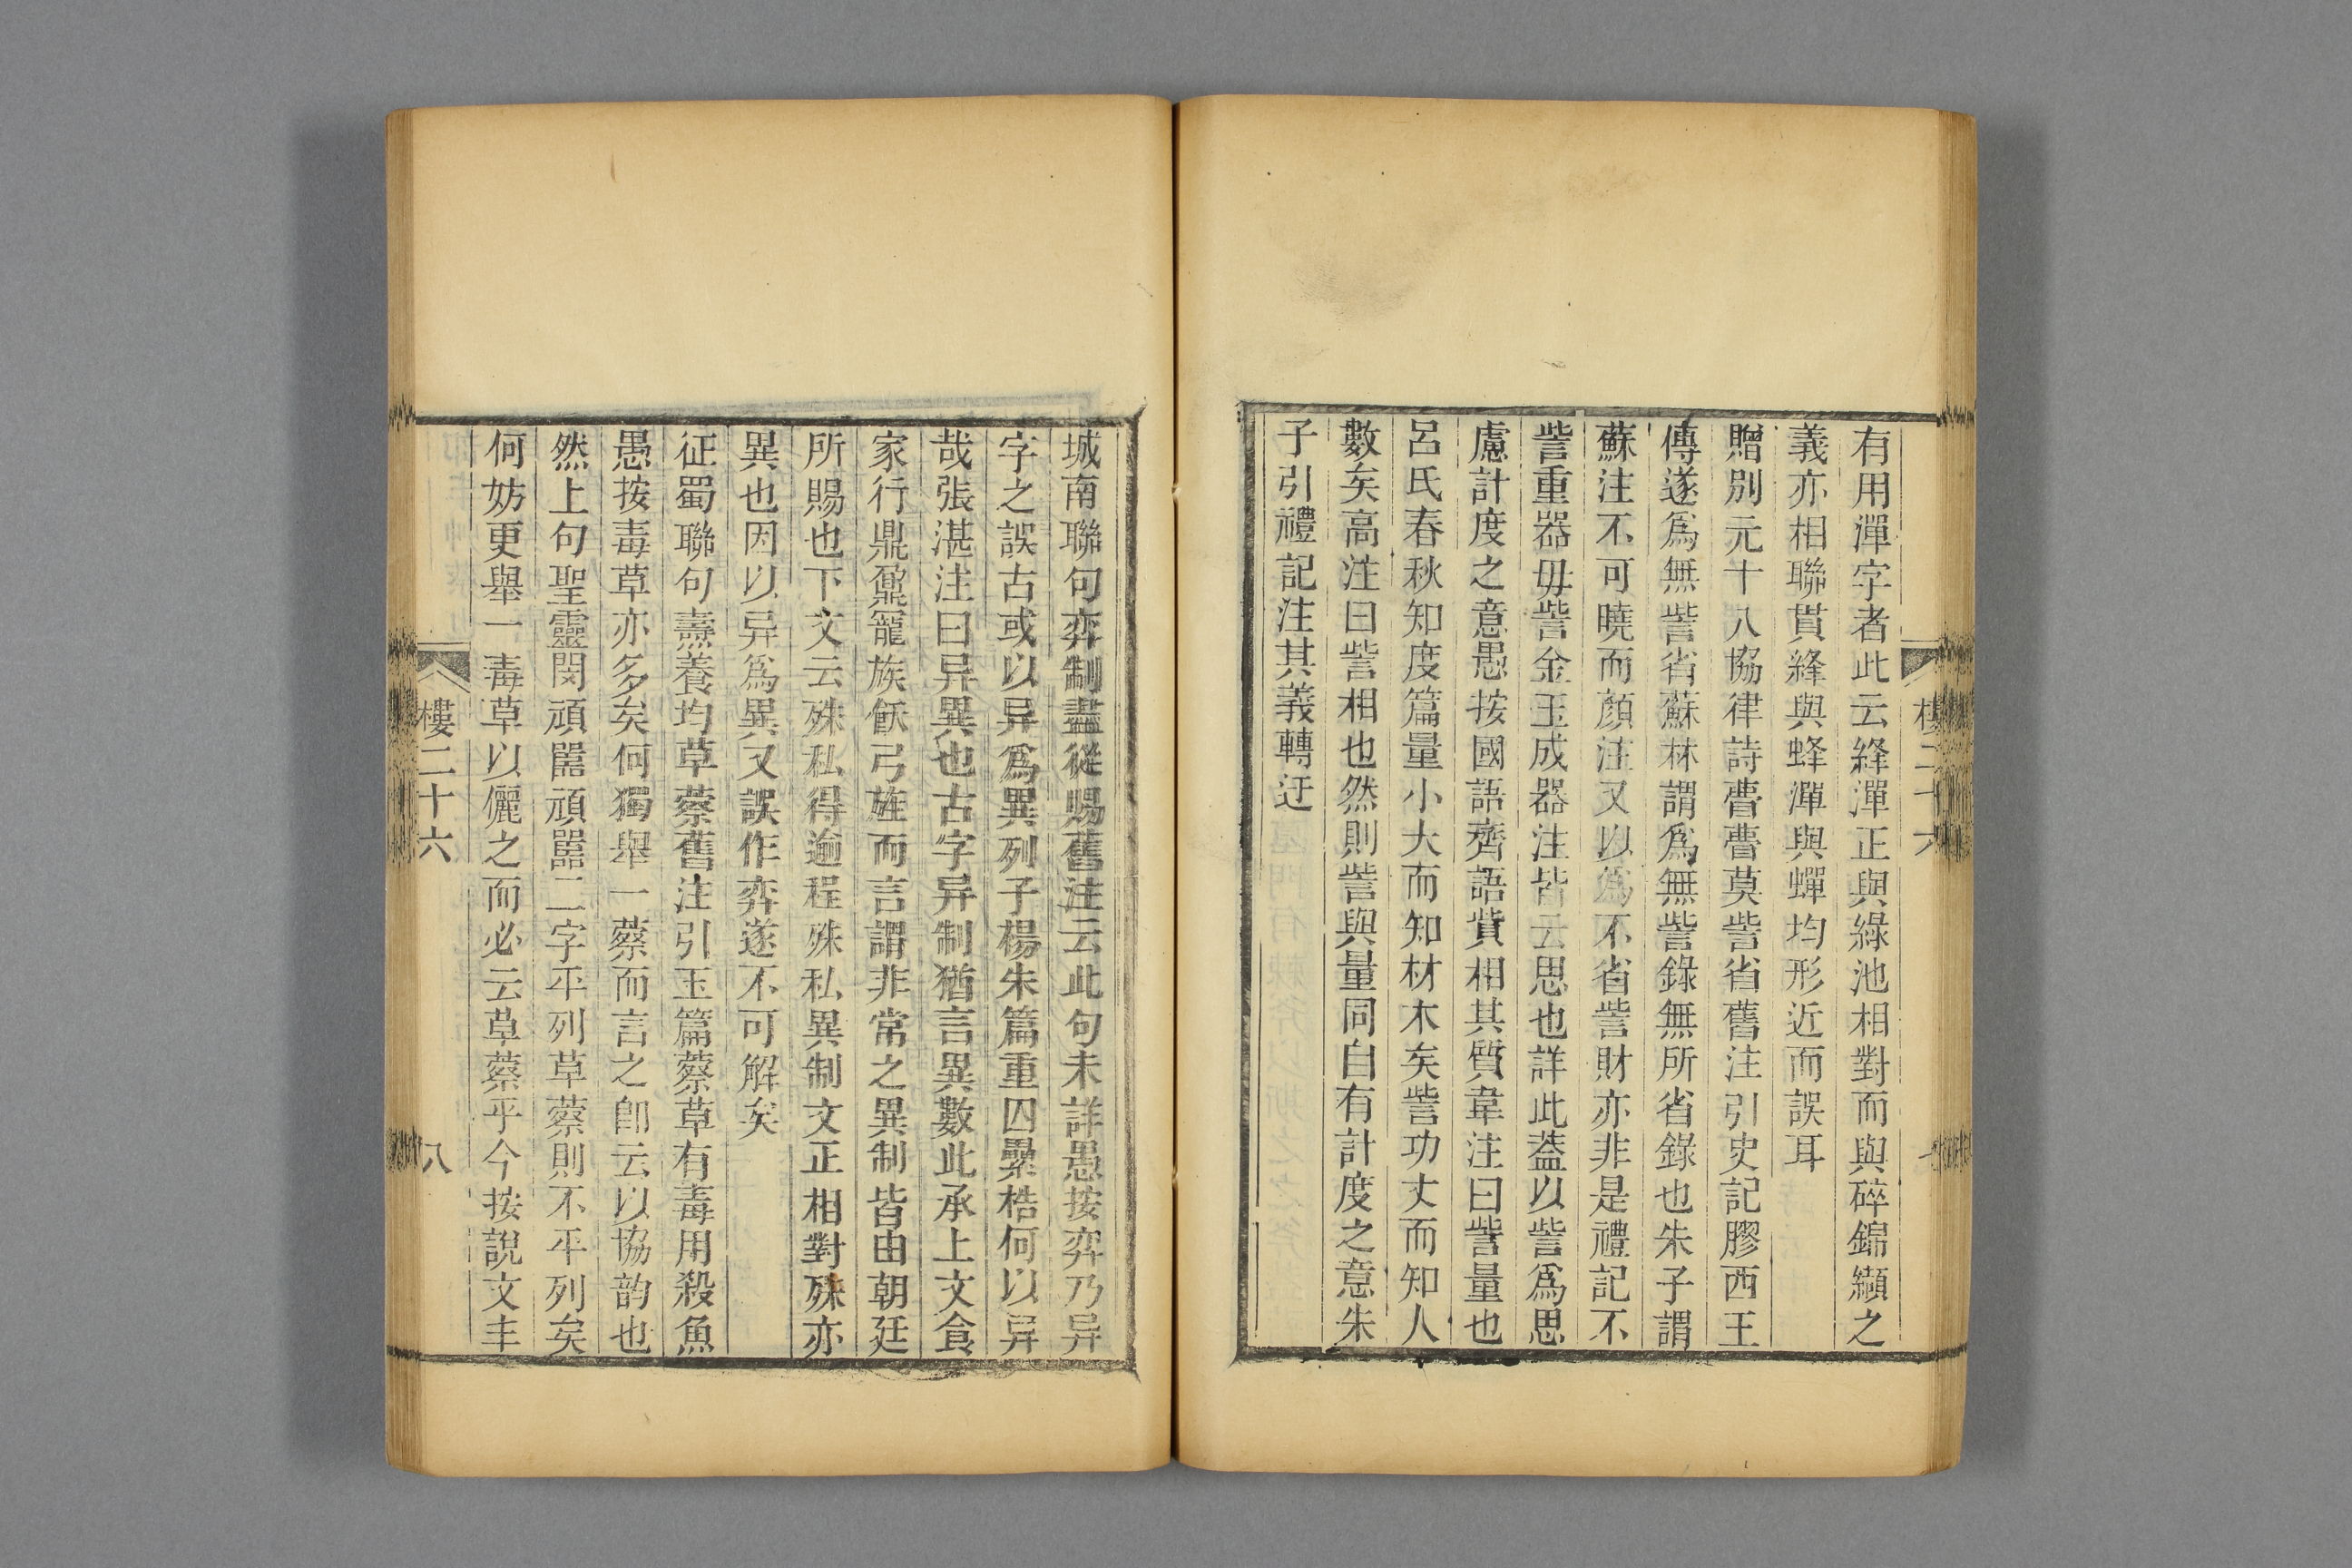 有用潬字者此云絳潬正與綠池相對而與碎錦纈之
義亦相聯貫絳與蜂潬與蟬均形近而誤耳
贈別元十八協律詩瞢瞢莫訾省舊注引史記膠西王
傳遂爲無訾省蘇林謂爲無訾錄無所省錄也朱子謂
蘇注不可曉而顏注又以爲不省訾財亦非是禮記不
訾重器毋訾金玉成器注皆云思也詳此葢以訾爲思
慮計度之意愚按國語齊語訾相其質韋注曰訾量也
呂氏春秋知度篇量小大而知材木矣訾功丈而知人
數矣高注曰訾相也然則訾與量同自有計度之意朱
子引禮記注其義轉迂
樓二十六
城南聯句弈制盡從賜舊注云此句未詳愚按弈乃异
字之誤古或以异爲異列子楊朱篇重囚纍梏何以异
哉張湛注曰异異也古字异制猶言異數此承上文食
家行鼎鼐寵族飫弓旌而言謂非常之異制皆由朝廷
所賜也下文云殊私得逾程殊私異制文正相對殊亦
異也因以异爲異又誤作弈遂不可解矣
征蜀聯句燾養均草蔡舊注引玉篇蔡草有毒用殺魚
愚按毒草亦多矣何獨舉一蔡而言之卽云以協韵也
然上句聖靈閔頑嚚頑嚚二字平列草蔡則不平列矣
何妨更舉一毒草以儷之而必云草蔡乎今按說文丰
樓二十六
八